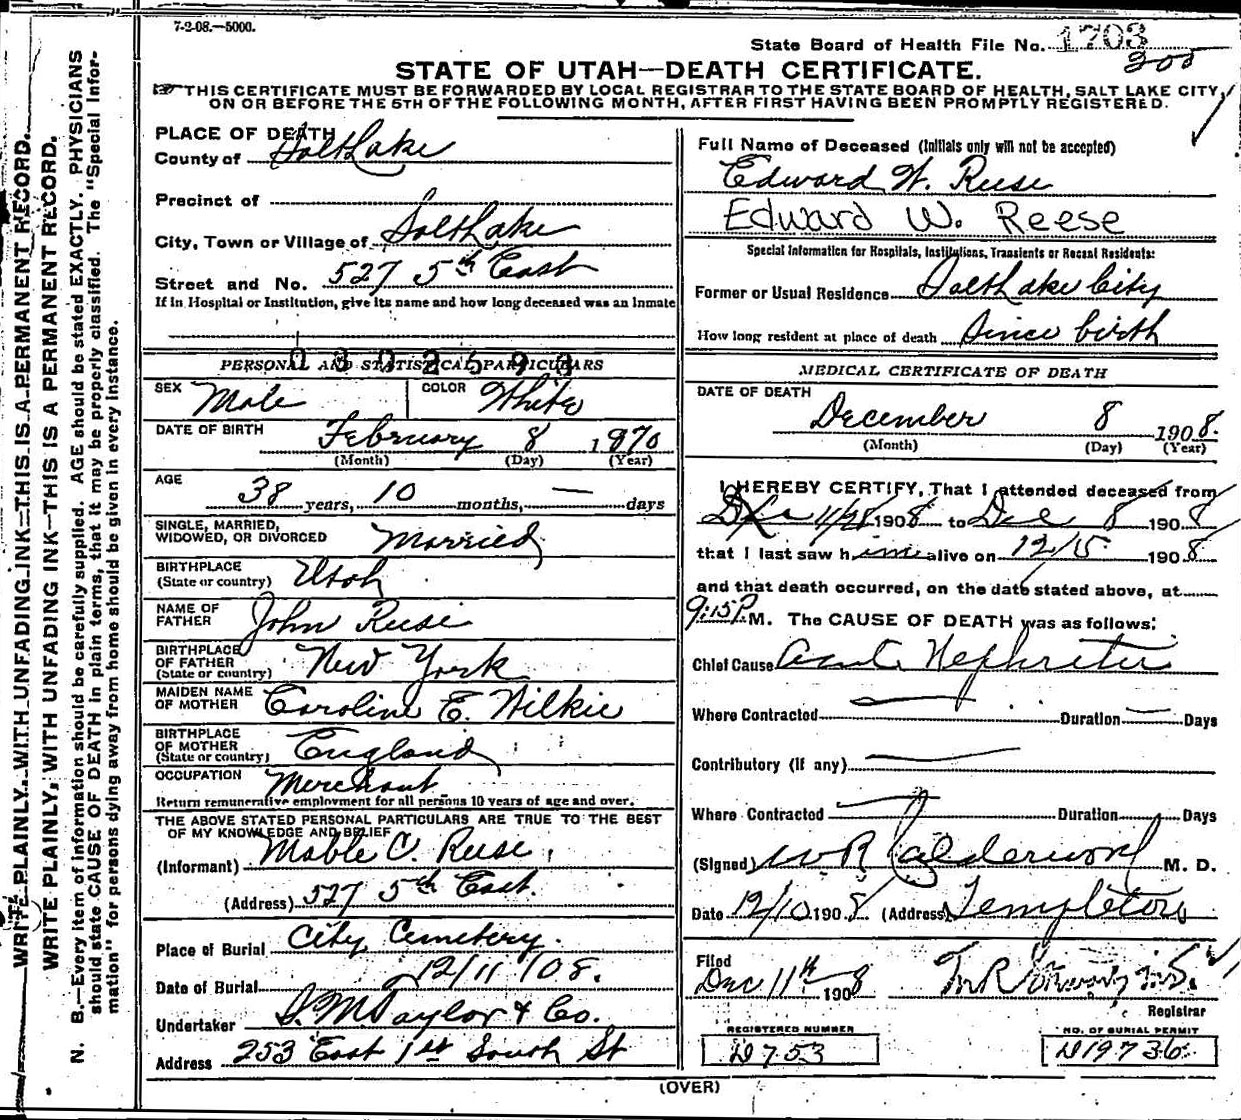 7-2-08.—5000.
State Board of Health File No. 1703
200
STATE OF UTAH—DEATH CERTIFICATE.
THIS CERTIFICATE MUST BE FORWARDED BY LOCAL REGISTRAR TO THE STATE BOARD OF HEALTH, SALT LAKE CITY,
ON OR BEFORE THE 5TH OF THE FOLLOWING MONTH, AFTER FIRST HAVING BEEN PROMPTLY REGISTERED.
WRITE PLAINLY WITH UNFADING INK—THIS IS A PERMANENT RECORD.
WRITE PLAINLY, WITH UNFADING INK—THIS IS A PERMANENT RECORD.
N. B.—Every item of information should be carefully supplied. AGE should be stated EXACTLY. PHYSICIANS
should state CAUSE OF DEATH in plain terms, that it may be properly classified. The "Special Infor-
mation" for persons dying away from home should be given in every instance.
PLACE OF DEATH
County of Salt Lake
Precinct of
City, Town or Village of Salt Lake
Street and No. 527 5th East
If in Hospital or Institution, give its name and how long deceased was an Inmate
0302593
PERSONAL AND STATISTICAL PARTICULARS
SEX Male COLOR White
DATE OF BIRTH February 8 1870
(Month) (Day) (Year)
AGE
38 years, 10 months, — days
SINGLE, MARRIED,
WIDOWED, OR DIVORCED Married
BIRTHPLACE
(State or country) Utah
NAME OF
FATHER John Reese
BIRTHPLACE
OF FATHER
(State or country) New York
MAIDEN NAME
OF MOTHER Caroline E. Wilkie
BIRTHPLACE
OF MOTHER
(State or country) England
OCCUPATION Merchant
Return remunerative employment for all persons 10 years of age and over.
THE ABOVE STATED PERSONAL PARTICULARS ARE TRUE TO THE BEST
OF MY KNOWLEDGE AND BELIEF
(Informant) Mable C. Reese
(Address) 527 5th East.
Place of Burial City Cemetery.
Date of Burial 12/11/08.
Undertaker S. M. Taylor & Co.
Address 253 East 1st South St
Full Name of Deceased (Initials only will not be accepted)
Edward W. Reese
Edward W. Reese
Special Information for Hospitals, Institutions, Transients or Recent Residents:
Former or Usual Residence Salt Lake City
How long resident at place of death Since birth
MEDICAL CERTIFICATE OF DEATH
DATE OF DEATH
December 8 1908.
(Month) (Day) (Year)
I HEREBY CERTIFY, That I attended deceased from
11/28 1908 to Dec 8 1908
that I last saw him alive on 12/5 1908
and that death occurred, on the date stated above, at
9:15 P. M. The CAUSE OF DEATH was as follows:
Chief Cause Acute Nephritis
Where Contracted — Duration — Days
Contributory (if any) —
Where Contracted Duration Days
(Signed) W R Calderwood M. D.
Date 12/10 1908 (Address) Templeton
Filed
Dec 11th 1908
Registrar
REGISTERED NUMBER
D753
NO. OF BURIAL PERMIT
D19736
(OVER)